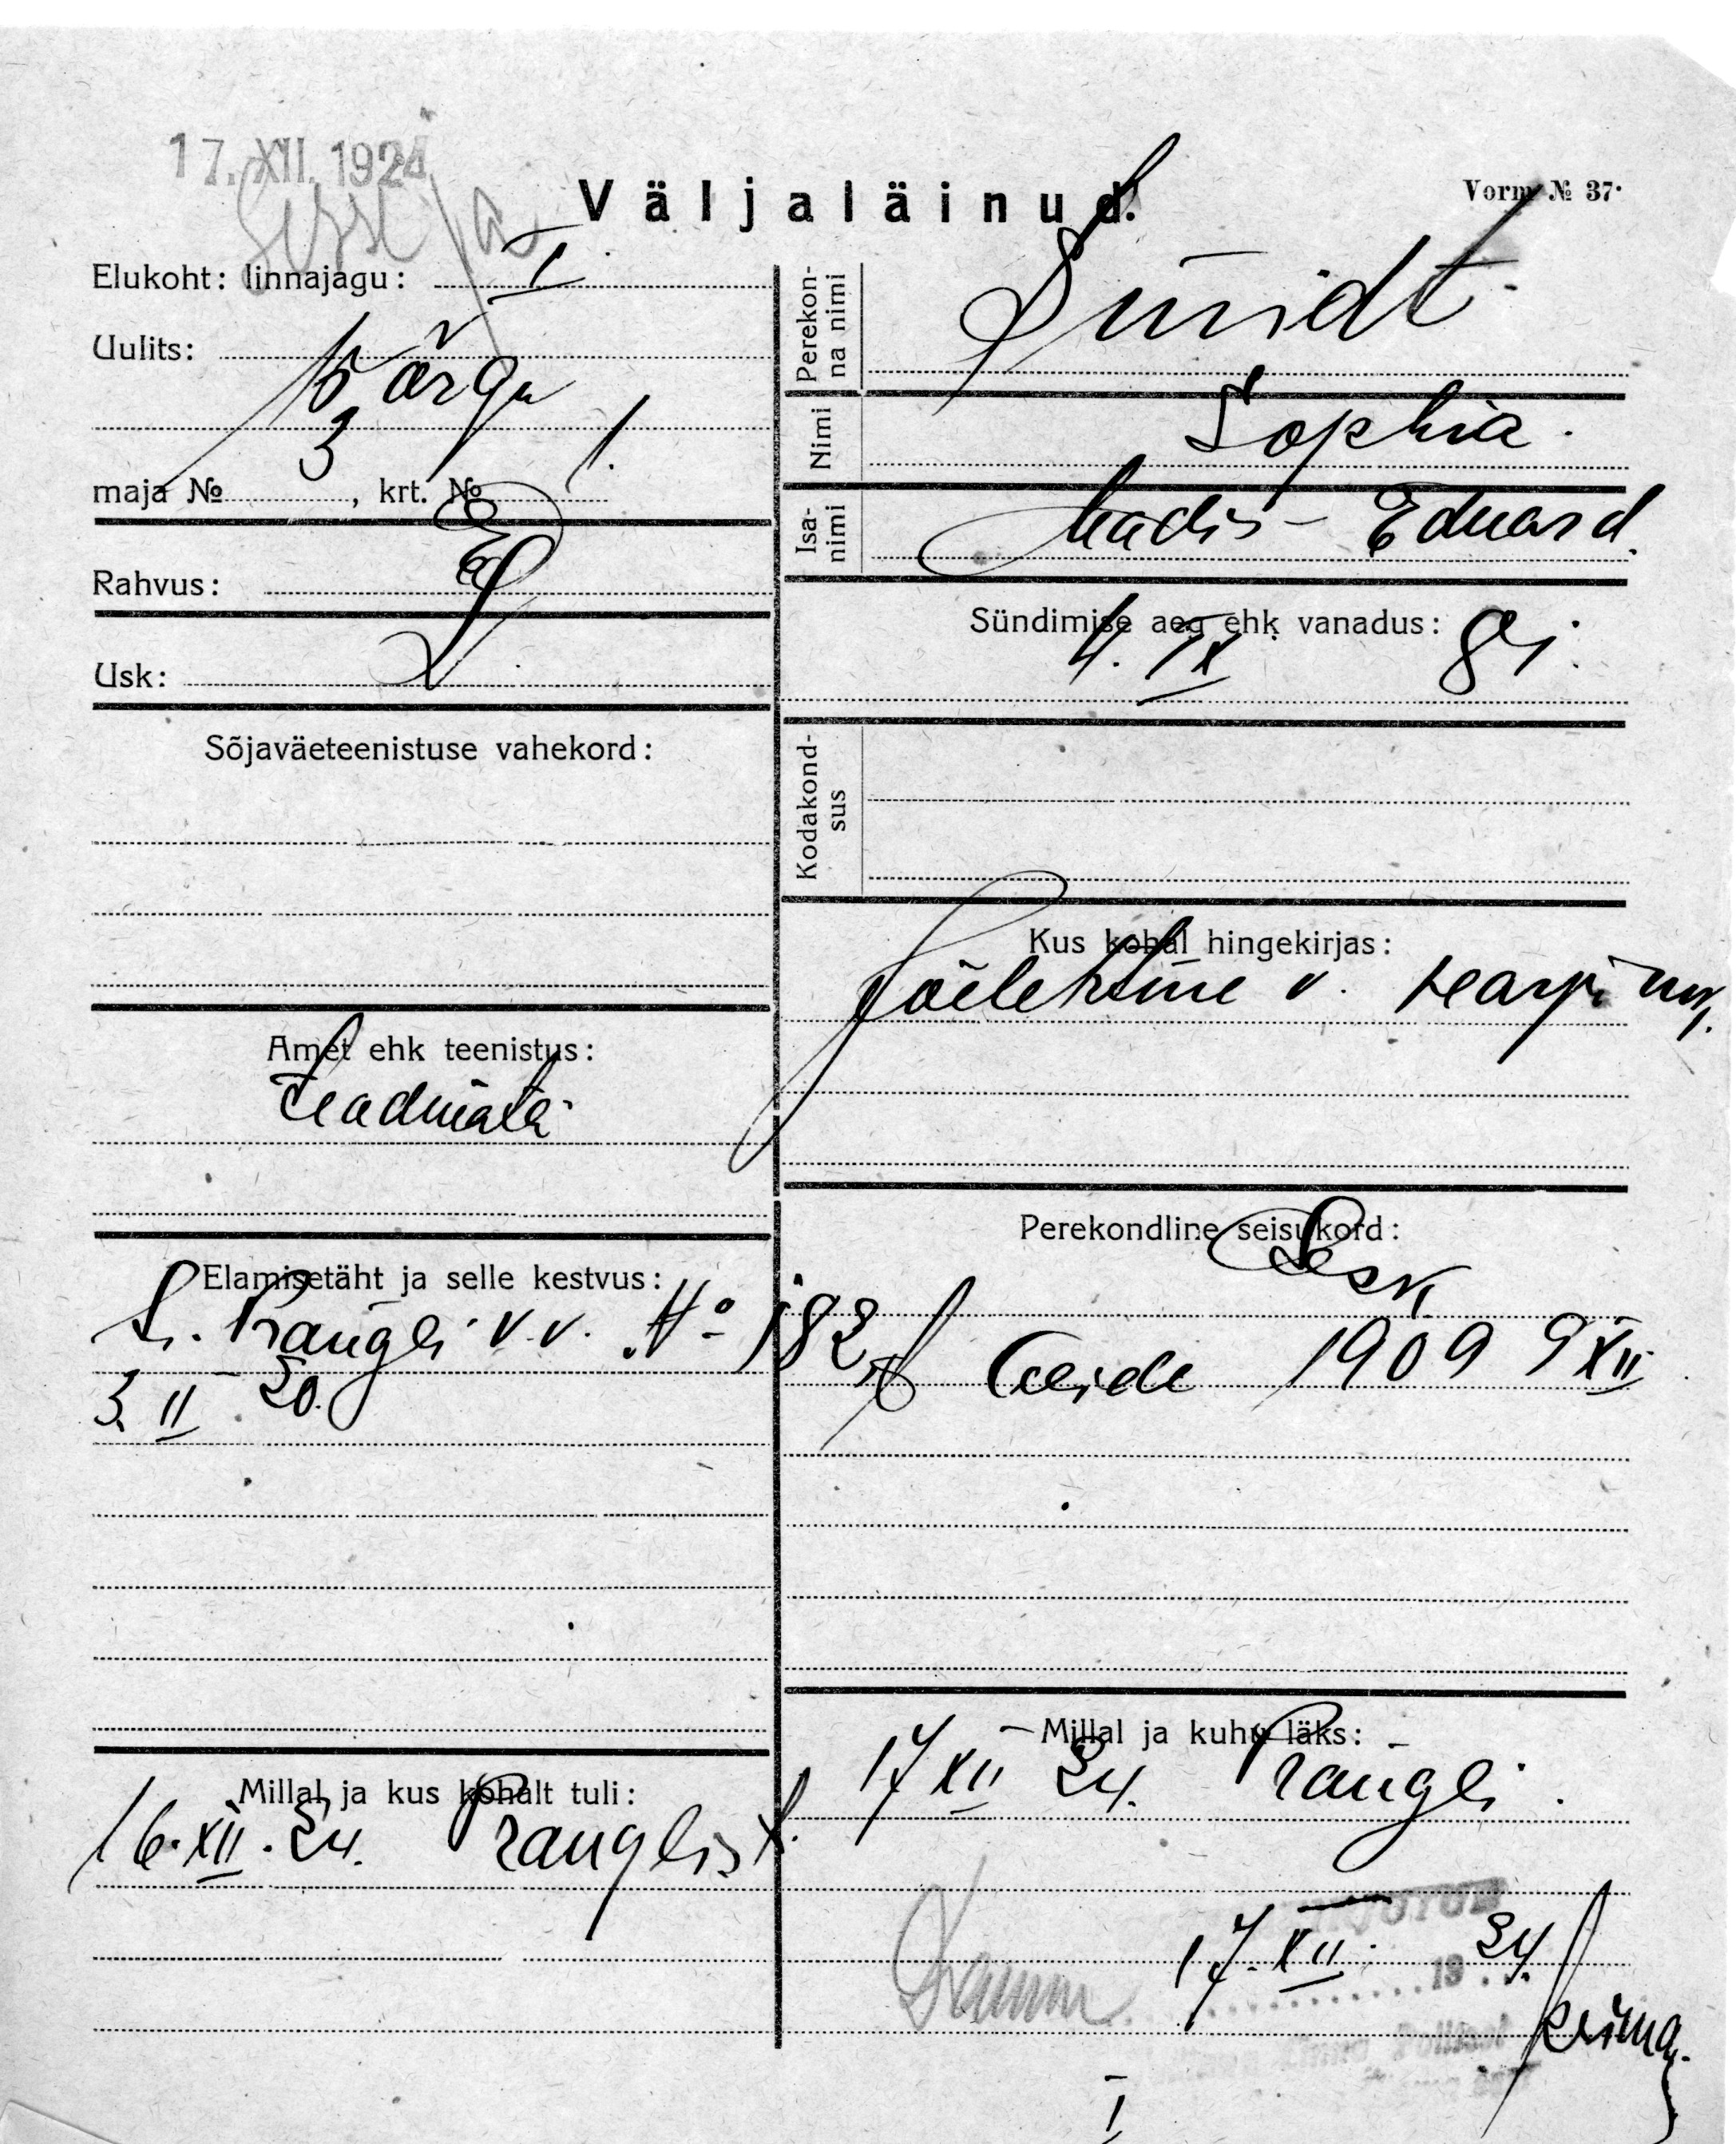 17. XII. 1924
Väljaläinud.
Vorm № 37.
Elukoht: linnajagu: I
Uulits:
Põrgu
maja № 3, krt. № 1.
Rahvus: E
Usk: L
Sõjaväeteenistuse vahekord:
Amet ehk teenistus:
teadmata
Elamisetäht ja selle kestvus:
Prangli v.v. № 182
3. II 20.
Millal ja kus kohalt tuli:
16. XII. 24. Pranglist.
Perekonna nimi
Nimi Sophia.
Isanimi Madis-Eduard.
Sündimise aeg ehk vanadus:
4. IX 81.
Kodakondsus
Kus kohal hingekirjas:
Jõelehtme v. Harju
Perekondline seisukord:
Lesk
1909 9 XII
Millal ja kuhu läks:
17 XII 24. Prangli.
17. XII. 24.
19
I